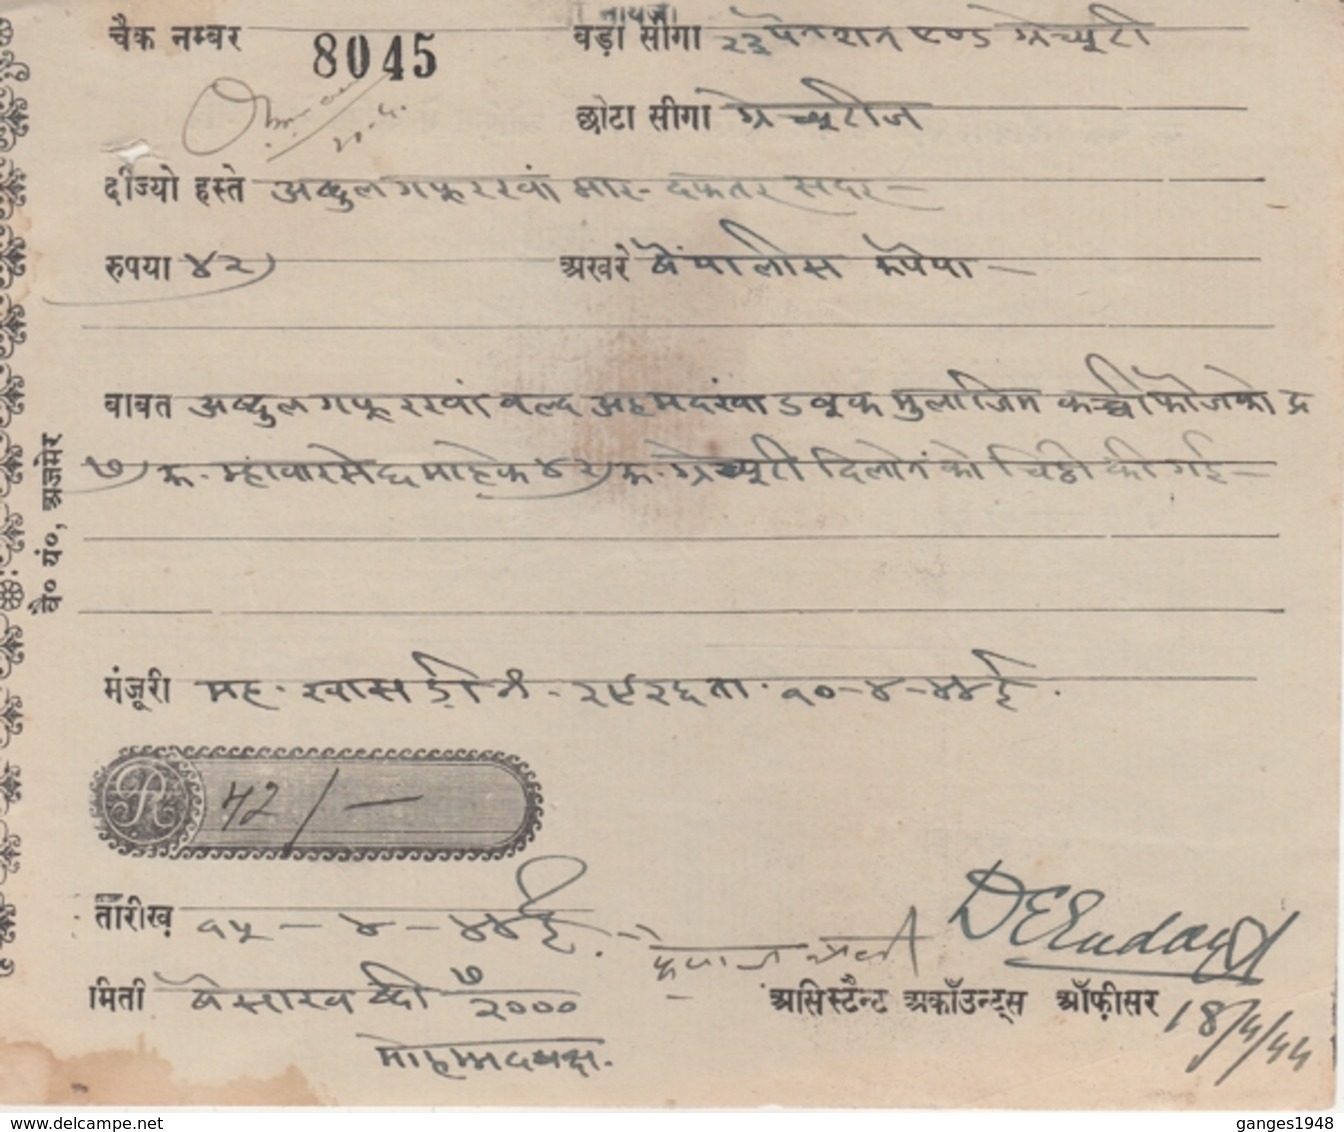 चैक नम्बर 8045 बड़ा सीगा २३ पेनशन एण्ड ग्रेच्यूटी
छोटा सीगा ग्रेच्यूटीज
20-4.
दीज्यो हस्ते अब्दुल गफूरखां मार- दफतर सदर
रुपया ४२) अखरे बैंयालीस रूपेया
बाबत अब्दुल गफूरखां वल्द अहमदखां डबूक मुलाजिम कच्ची फौज को प्र
७) रू. म्हावार से ६ माह के ४२) रू. ग्रेच्यूटी दिलाने को चिठी की गई
वै० यं०, अजमेर
मंजूरी मह. खास डी. नं. २९२६ ता. १०-४-४४ ई.
R 42/-
तारीख़ १५-४-४४ ई.
मिती बैसाख बदी ७ २०००
असिस्टैन्ट अकॉउन्ट्स ऑफ़ीसर 18/4/44
मोहमदबक्ष.
www.delcampe.net ganges1948